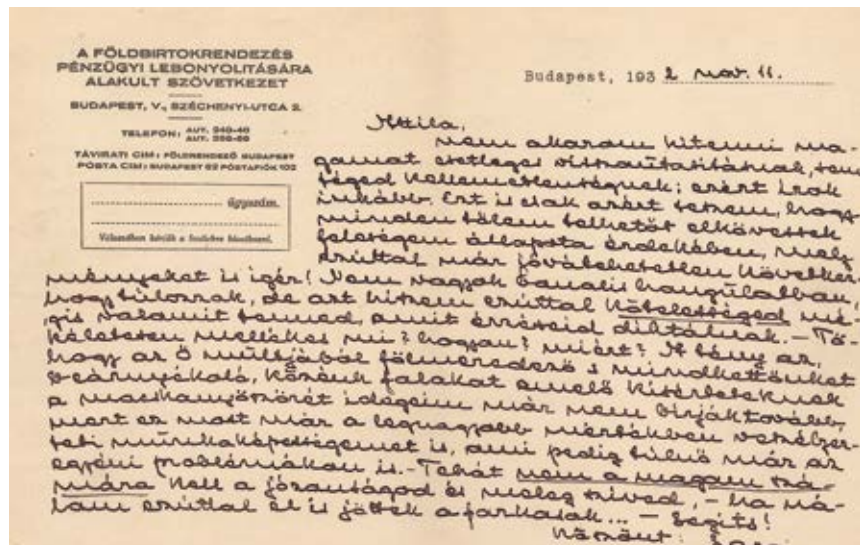 A FÖLDBIRTOKRENDEZÉS
PÉNZÜGYI LEBONYOLITÁSÁRA
ALAKULT SZÖVETKEZET
BUDAPEST, V., SZÉCHENYI-UTCA 2.
TELEFON: AUT.
AUT.
TÁVIRATI CIM: FÖLDRENDEZŐ BUDAPEST
POSTA CIM: BUDAPEST 62 POSTAFIÓK 102
ügyszám.
Válaszában kérjük a fentiekre hivatkozni.
Budapest, 1932 nov. 11.
Attila,
Nem akarom kitenni ma-
gamat esetleges visszautasításnak,
téged kellemetlenségnek; ezért írok
inkább. Ezt is csak azért teszem, hogy
minden tőlem telhetőt elkövessek
feleségem állapota érdekében, mely
ezúttal már jóvátehetetlen következ-
ményeket is igér! Nem vagyok banális hangulatban,
hogy túlozzak, de azt hiszem ezúttal kötelességed mé-
gis valamit tenned, amit érzéseid diktálnak. – Tö-
kéletesen mellékes mi? hogyan? miért? A tény az,
hogy az ő múltjából fölmeredező s mindkettőnket
beárnyékoló, közénk falakat emelő kisérteteknek
a idegeim már nem birják tovább,
mert ez most már a legnagyobb mértékben veszélyez-
teti munkaképességemet is, ami pedig túlnő már az
egyéni problémákon is. – Tehát nem a magam szá-
mára kell a józanságod és meleg szived, – ha ná-
lam ezúttal el is jöttek a farkasok... – Segits!
Köszönt: